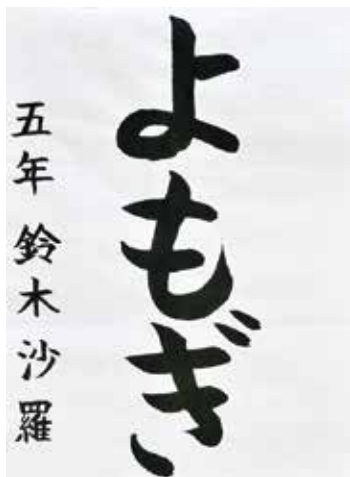 よもぎ
五年 鈴木沙羅